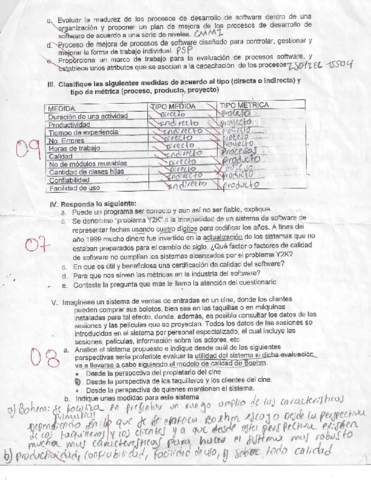 c. Evaluar la madurez de los procesos de desarrollo de software dentro de una
organización y proponer un plan de mejora de los procesos de desarrollo de
software de acuerdo a una serie de niveles. CMMI
d. Proceso de mejora de procesos de software diseñado para controlar, gestionar y
mejorar la forma de trabajo individual PSP
e. Proporciona un marco de trabajo para la evaluación de procesos software, y
establece unos atributos que se asocian a la capacidad de los procesos ISO/IEC 15504
III. Clasifique las siguientes medidas de acuerdo al tipo (directa o indirecta) y
tipo de métrica (proceso, producto, proyecto)
MEDIDA TIPO MEDIDA TIPO METRICA
Duración de una actividad directo
Productividad indirecto
Tiempo de experiencia
No. Errores directo
Horas de trabajo directo
Calidad indirecto
No de módulos reusables directo producto
Cantidad de clases hijas directo producto
Confiabilidad indirecto producto
Facilidad de uso indirecto producto
09
IV. Responda lo siguiente:
a. Puede un programa ser correcto y aun así no ser fiable, explique
b. Se denominó "problema Y2K" a la incapacidad de un sistema de software de
representar fechas usando cuatro dígitos para codificar los años. A fines del
año 1999 mucho dinero fue invertido en la actualización de los sistemas que no
estaban preparados para el cambio de siglo. ¿Qué factor o factores de calidad
de software no cumplían los sistemas alcanzados por el problema Y2K?
c. En que es útil y beneficiosa una certificación de calidad del software?
d. Para que nos sirven las métricas en la industria del software?
e. Conteste la pregunta que más le llamo la atención del cuestionario
07
V. Imagínese un sistema de ventas de entradas en un cine, donde los clientes
pueden comprar sus boletos, bien sea en las taquillas o en máquinas
instaladas para tal efecto, donde, además, es posible consultar los datos de las
sesiones y las películas que se proyectan. Todos los datos de las sesiones son
introducidos en el sistema por personal especializado, el cual incluye las
sesiones, películas, información sobre los actores, etc
08
a. Analice el sistema propuesto e indique desde cuál de las siguientes
perspectivas sería preferible evaluar la utilidad del sistema si dicha evaluación
va a llevarse a cabo siguiendo el modelo de calidad de Boehm.
• Desde la perspectiva del propietario del cine
• Desde la perspectiva de los taquilleros y los clientes del cine.
• Desde la perspectiva de quienes mantienen el sistema.
b. Indique unas medidas para este sistema
a) Bohem: se focaliza en un rango amplio de las características
primarias
dependiendo en lo que se Boehm escogo desde la perspectiva
de los taquilleros y los clientes ya que desde esta perspectiva existen
mucha mas caracteristicas para hacer el sistema mas robusto
b) productividad, confiabilidad, facilidad de uso, y sobre todo calidad